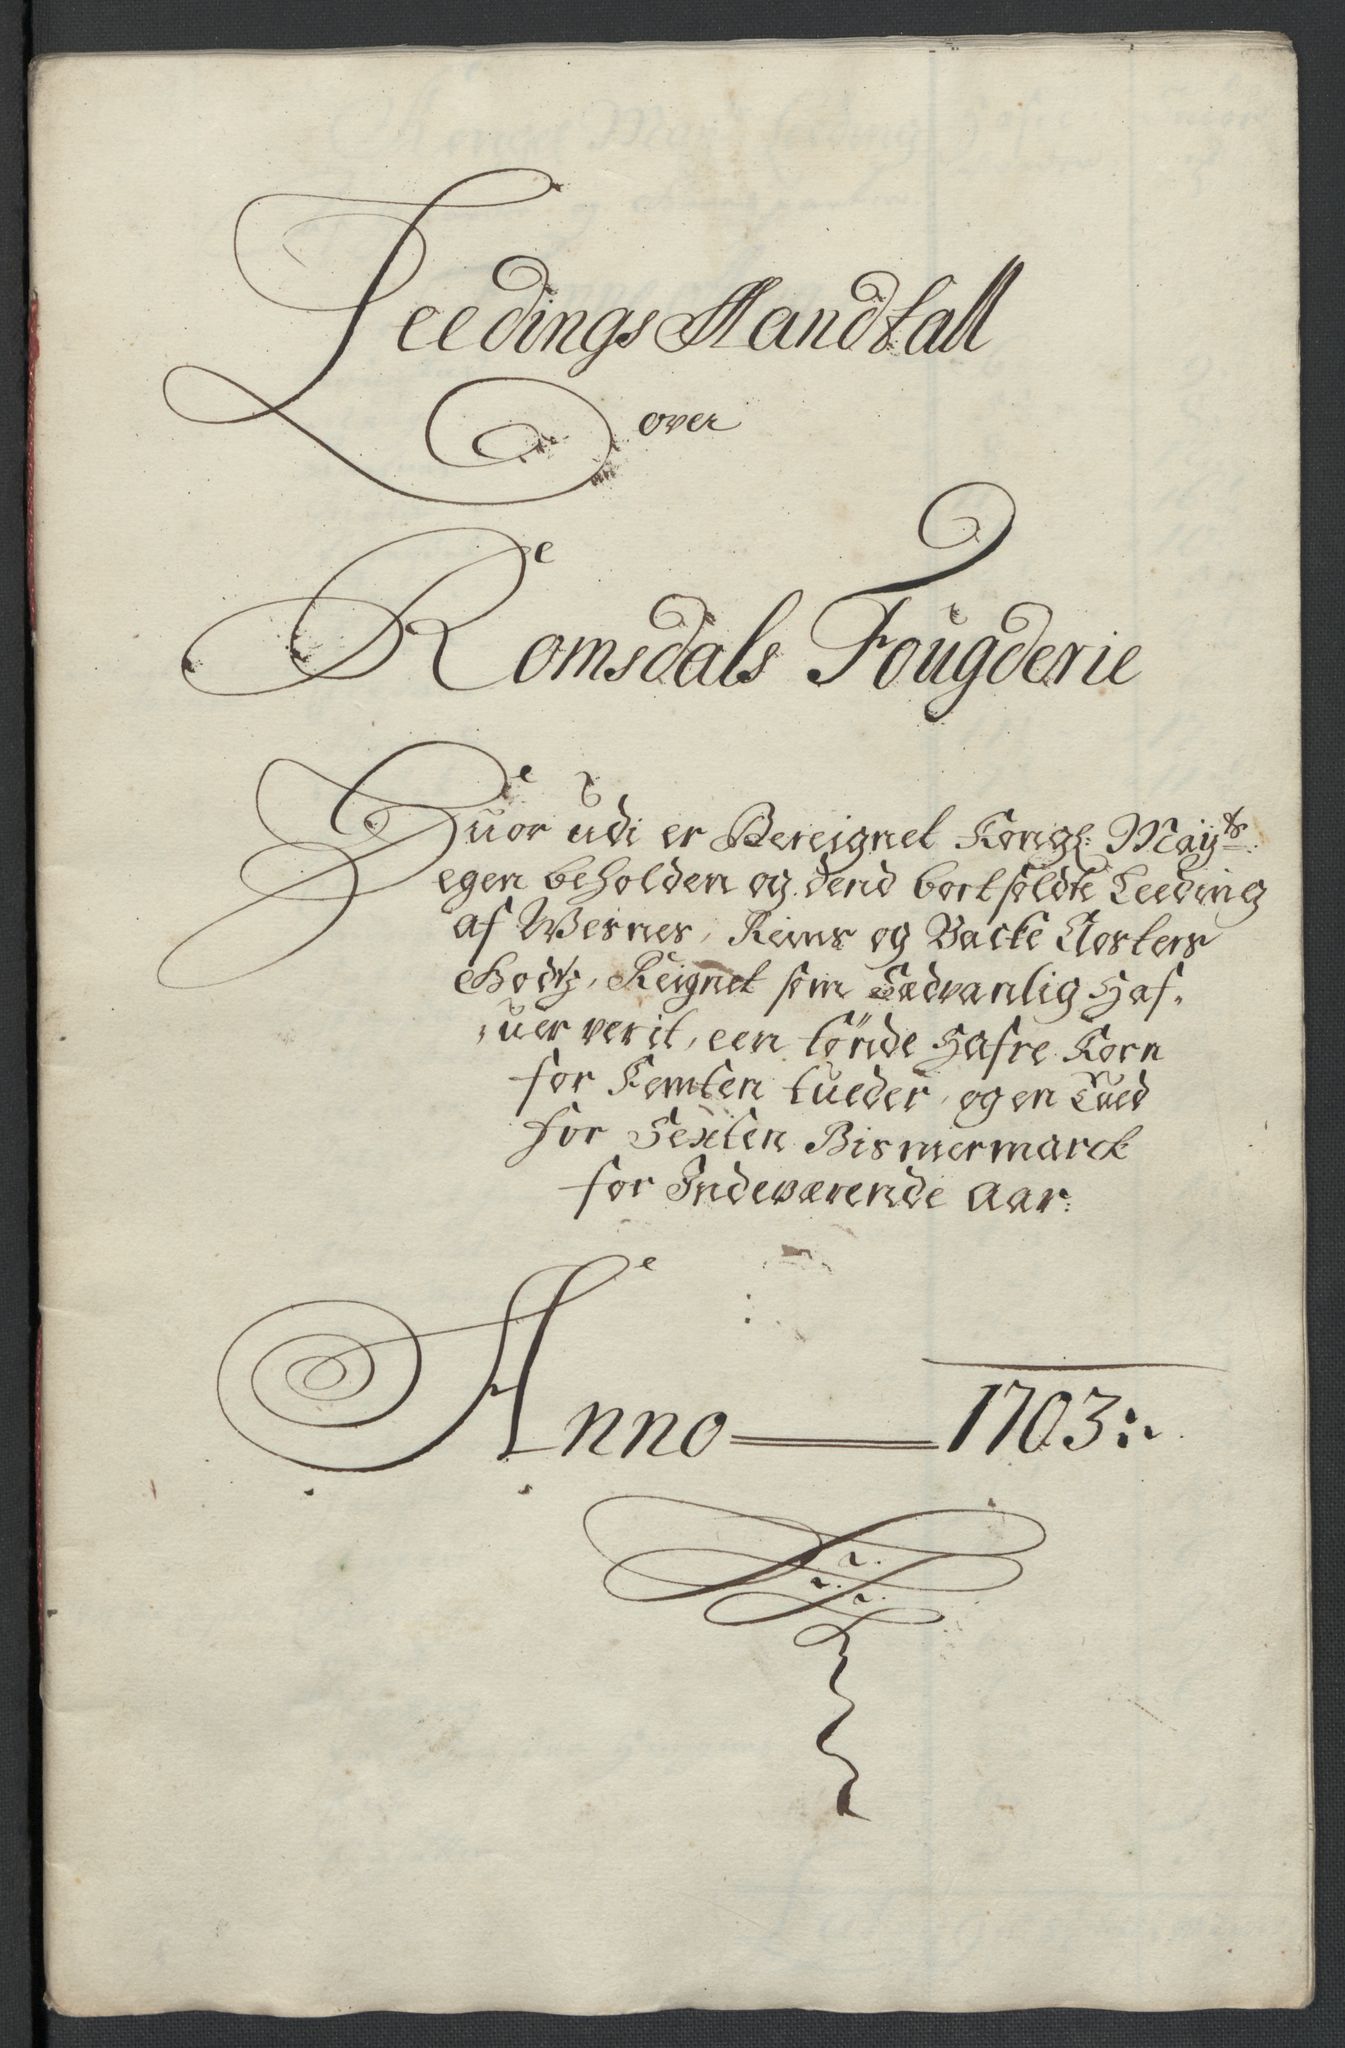 Leedings Mandtall
over
Romsdals Fougderie
Huor udi er Bereignet Kongl: Mayts
egen beholden og dend bortsoldte Leeding
af Wesnes, Reins og Backe Closters
Godtz, Reignet som Sædvanlig Haf-
uer verit, een tønde Hafre Korn
for Femten tueder, og en Tued
for Sexten Bismermarck
for Indeværende Aar:
Anno 1703: